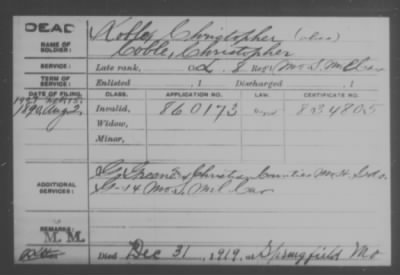 DEAD
NAME OF SOLDIER: Kobler, Christopher (alias)
Coble, Christopher
SERVICE: Late rank, Co. L. 8 Reg't Mo. S. M. Cav
TERM OF SERVICE: Enlisted , 1 Discharged , 1
DATE OF FILING. CLASS. APPLICATION NO. LAW. CERTIFICATE NO.
1890 Aug 2 Invalid, 860173 834805
Widow,
Minor,
ADDITIONAL SERVICES: G. Greene & Christian Counties Mo. H. Gds.
G-14 Mo. S. Mil Cav
REMARKS: M. M.
Died Dec 31, 1919, at Springfield Mo